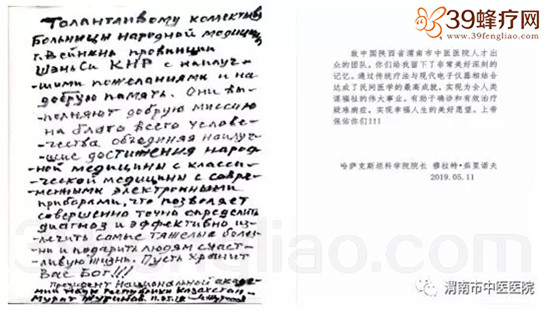 39蜂疗网
www.39fengliao.com
Талантливому коллективу
Больницы народной медицины
г. Вейнань провинции
ШэньСи КНР с наилуч-
шими пожеланиями и на
добрую память. Они вы-
полняют добрую миссию
на благо всего челове-
чества объединяя наилуч-
шие достижения народ-
ной медицины с класси-
ческой медициной с совре-
менными электронными
приборами, что позволяет
совершенно точно определить
диагноз и эффективно из-
лечить самые тяжелые болез-
ни и подарить людям счаст-
ливую жизнь. Пусть хранит
Вас Бог!!!
Президент Национальной академии
наук Республики Казахстан
Мурат Журинов
致中国陕西省渭南市中医医院人才出
众的团队,你们给我留下了非常美好深刻的
记忆。通过传统疗法与现代电子仪器相结合
达成了民间医学的最高成就,实现为全人类
谋福祉的伟大事业。有助于确诊和有效治疗
疑难病症,实现幸福人生的美好愿望。上帝
保佑你们!!!
哈萨克斯坦科学院院长 穆拉特·茹里诺夫
2019.05.11
www.39fengliao.com
渭南市中医医院